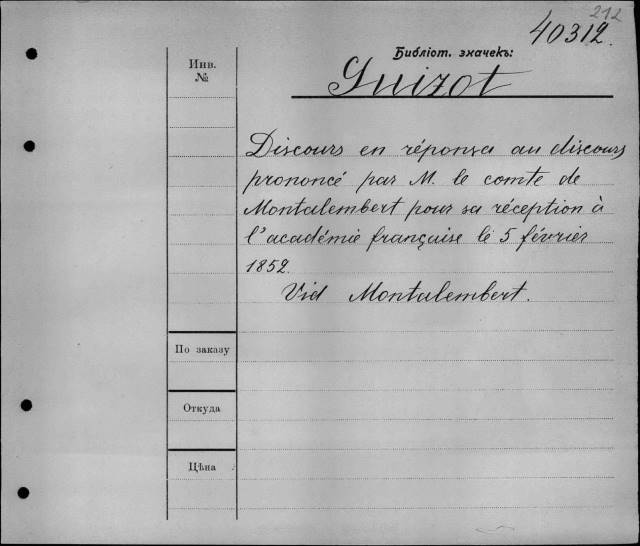 212
40312.
Библіот. значекъ:
Guizot
Инв.
№
Discours en réponsa au discours
prononcé par M. le comte de
Montalembert pour sa réception à
l'académie française le 5 février
1852.
Vid Montalembert.
По заказу
Откуда
Цѣна